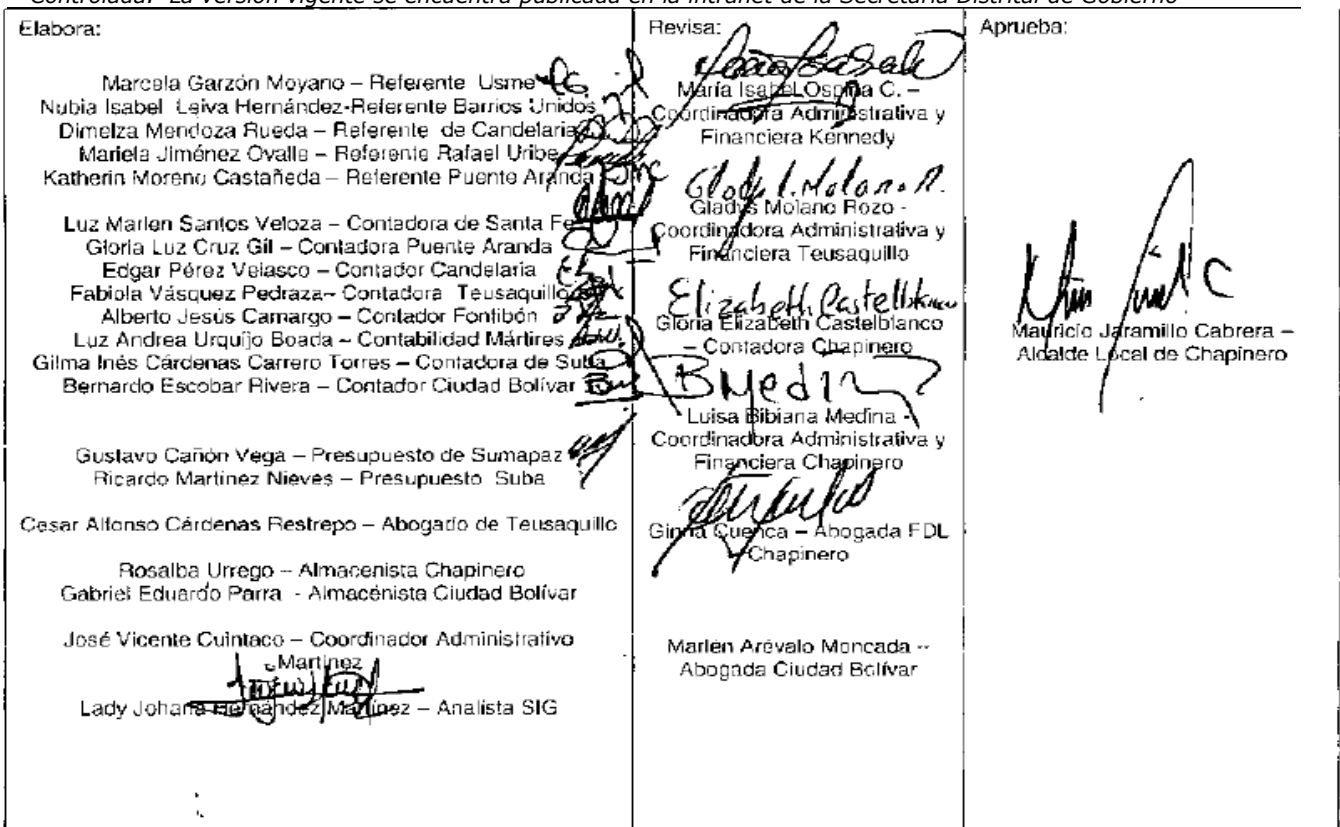 Controlada." La versión vigente se encuentra publicada en la intranet de la Secretaría Distrital de Gobierno"
Elabora:
Marcela Garzón Moyano – Referente Usme
Nubia Isabel Leiva Hernández-Referente Barrios Unidos
Dimelza Mendoza Rueda – Referente de Candelaria
Mariela Jiménez Ovalle – Referente Rafael Uribe
Katherin Moreno Castañeda – Referente Puente Aranda
Luz Marlen Santos Veloza – Contadora de Santa Fe
Gloria Luz Cruz Gil – Contadora Puente Aranda
Edgar Pérez Velasco – Contador Candelaria
Fabiola Vásquez Pedraza– Contadora Teusaquillo
Alberto Jesús Camargo – Contador Fontibón
Luz Andrea Urquijo Boada – Contabilidad Mártires
Gilma Inés Cárdenas Carrero Torres – Contadora de Suba
Bernardo Escobar Rivera – Contador Ciudad Bolívar
Gustavo Cañón Vega – Presupuesto de Sumapaz
Ricardo Martínez Nieves – Presupuesto Suba
Cesar Alfonso Cárdenas Restrepo – Abogado de Teusaquillo
Rosalba Urrego – Almacenista Chapinero
Gabriel Eduardo Parra - Almacénista Ciudad Bolívar
José Vicente Cuintaco – Coordinador Administrativo
Martinez
Lady Johana Hernández Martínez – Analista SIG
Revisa:
María Isabel Ospina C. –
Coordinadora Administrativa y
Financiera Kennedy
Gladys I. Molano R.
Gladys Molano Rozo -
Coordinadora Administrativa y
Financiera Teusaquillo
Elizabeth Castelblanco
Gloria Elizabeth Castelblanco
– Contadora Chapinero
BMedina
Luisa Bibiana Medina -
Coordinadora Administrativa y
Financiera Chapinero
Ginna Cuenca – Abogada FDL
Chapinero
Marlén Arévalo Moncada --
Abogada Ciudad Bolívar
Aprueba:
Mauricio Jaramillo Cabrera –
Alcalde Local de Chapinero